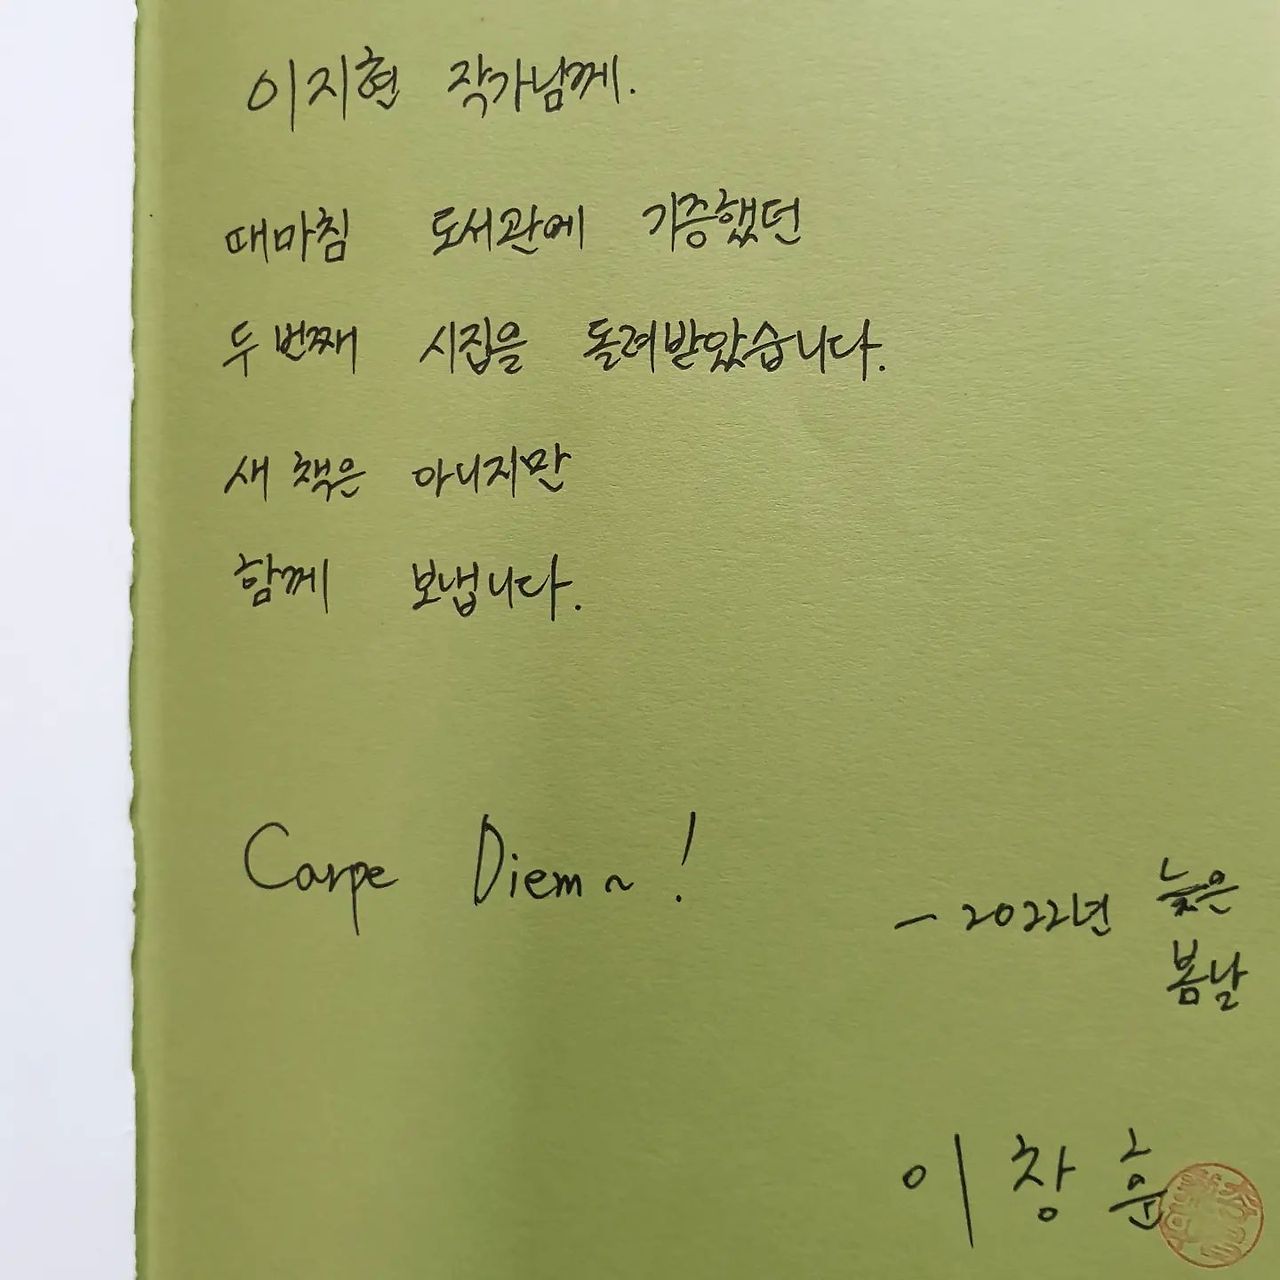 이지현 작가님께.
때마침 도서관에 기증했던
두번째 시집을 돌려받았습니다.
새 책은 아니지만
함께 보냅니다.
Carpe Diem~!
- 2022년 늦은
봄날
이창훈